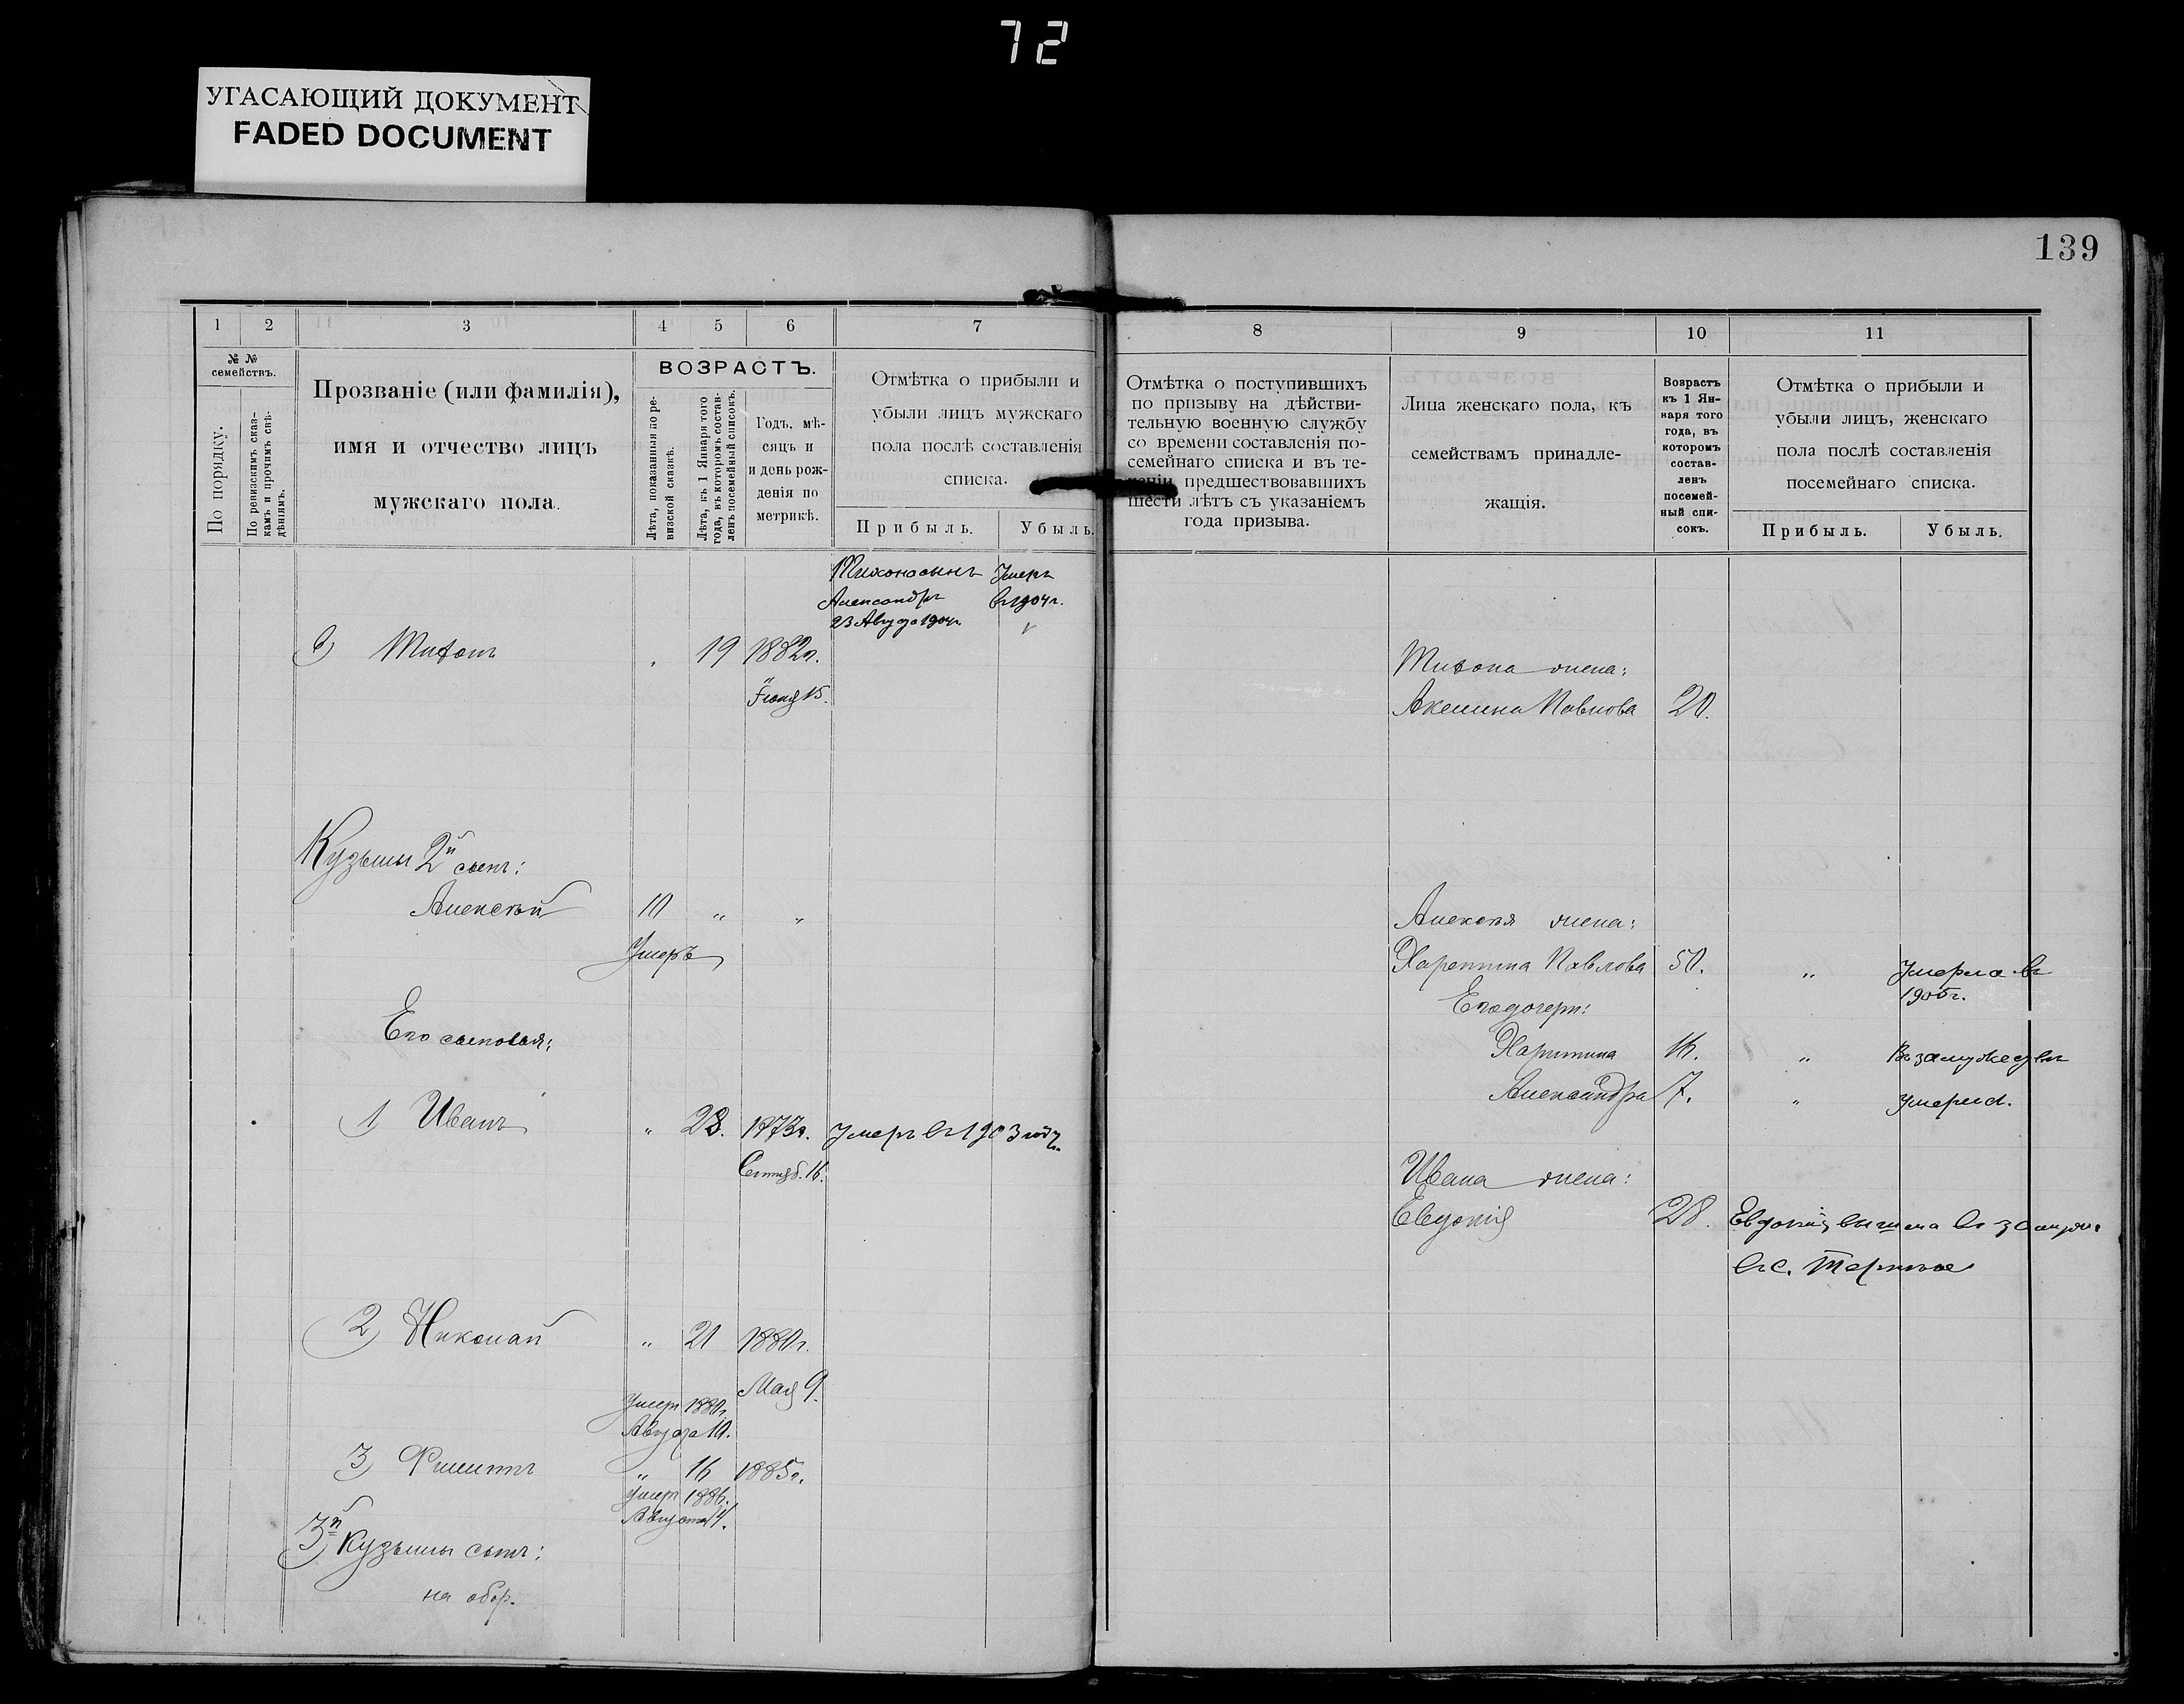 72
УГАСАЮЩИЙ ДОКУМЕНТ
FADED DOCUMENT
139
1 2 3 4 5 6 7
№ №
семействъ.
По порядку.
По ревизскимъ сказ-
камъ и прочимъ свѣ-
дѣніямъ.
Прозваніе (или фамилія),
имя и отчество лицъ
мужскаго пола.
ВОЗРАСТЪ.
Лѣта, показанныя по ре-
визской сказкѣ.
Лѣта, къ 1 Января того
года, въ которомъ состав-
ленъ посемейный списокъ.
Годъ, мѣ-
сяцъ и
и день рож-
денія по
метрикѣ.
Отмѣтка о прибыли и
убыли лицъ мужскаго
пола послѣ составленія
списка.
Прибыль. Убыль.
Тихона сынъ Умеръ
Александръ въ 1904 г.
23 Августа 1904 г.
Тихонъ „ 19 1882 г.
Іюня 15.
Кузьмы 2й сынъ:
Алексѣй 10 „ „
Умеръ
Его сыновья:
1) Иванъ „ 28. 1873 г. Умеръ въ 1903 году
Сентяб. 16.
2) Николай „ 21 1880 г.
Мая 9.
Умеръ 1880 г.
Августа 10.
3) Филиппъ „ 16 1885 г.
Умеръ 1886.
Августа 4.
3й Кузьмы сынъ:
на обор.
8 9 10 11
Отмѣтка о поступившихъ
по призыву на дѣйстви-
тельную военную службу
со времени составленія по-
семейнаго списка и въ те-
ченіи предшествовавшихъ
шести лѣтъ съ указаніемъ
года призыва.
Лица женскаго пола, къ
семействамъ принадле-
жащія.
Возрастъ
къ 1 Ян-
варя того
года, въ
которомъ
состав-
ленъ
посемей-
ный спи-
сокъ.
Отмѣтка о прибыли и
убыли лицъ, женскаго
пола послѣ составленія
посемейнаго списка.
Прибыль. Убыль.
Тихона жена:
Аксинья Павлова 20.
Алексѣя жена:
Харитина Павлова 50. „ Умерла въ
1905 г.
Его дочери:
Харитина 16. „ Въ замужествѣ
Александра 7. „ Умерла.
Ивана жена:
Евдокія 28. Евдокія вышла въ замуж.
въ с.